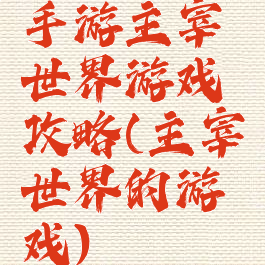 手游主宰
世界游戏
攻略(主宰
世界的游
戏)